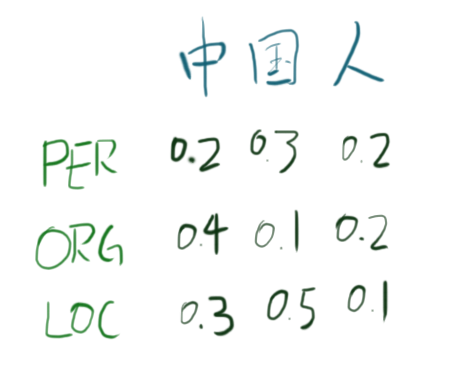 中国人
PER 0.2 0.3 0.2
ORG 0.4 0.1 0.2
LOC 0.3 0.5 0.1